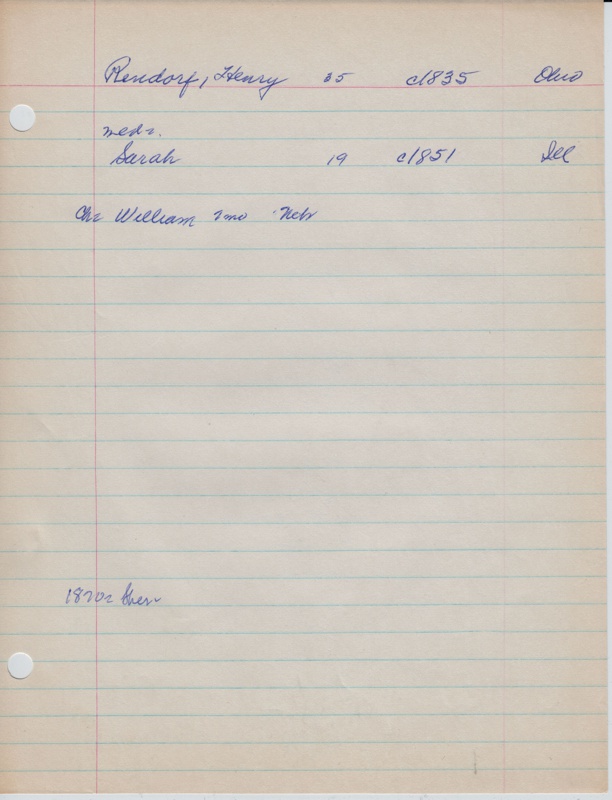 Rendorf, Henry 35 c1835 Ohio
md:
Sarah 19 c1851 Ill
Ch: William 2mo Neb
1870: